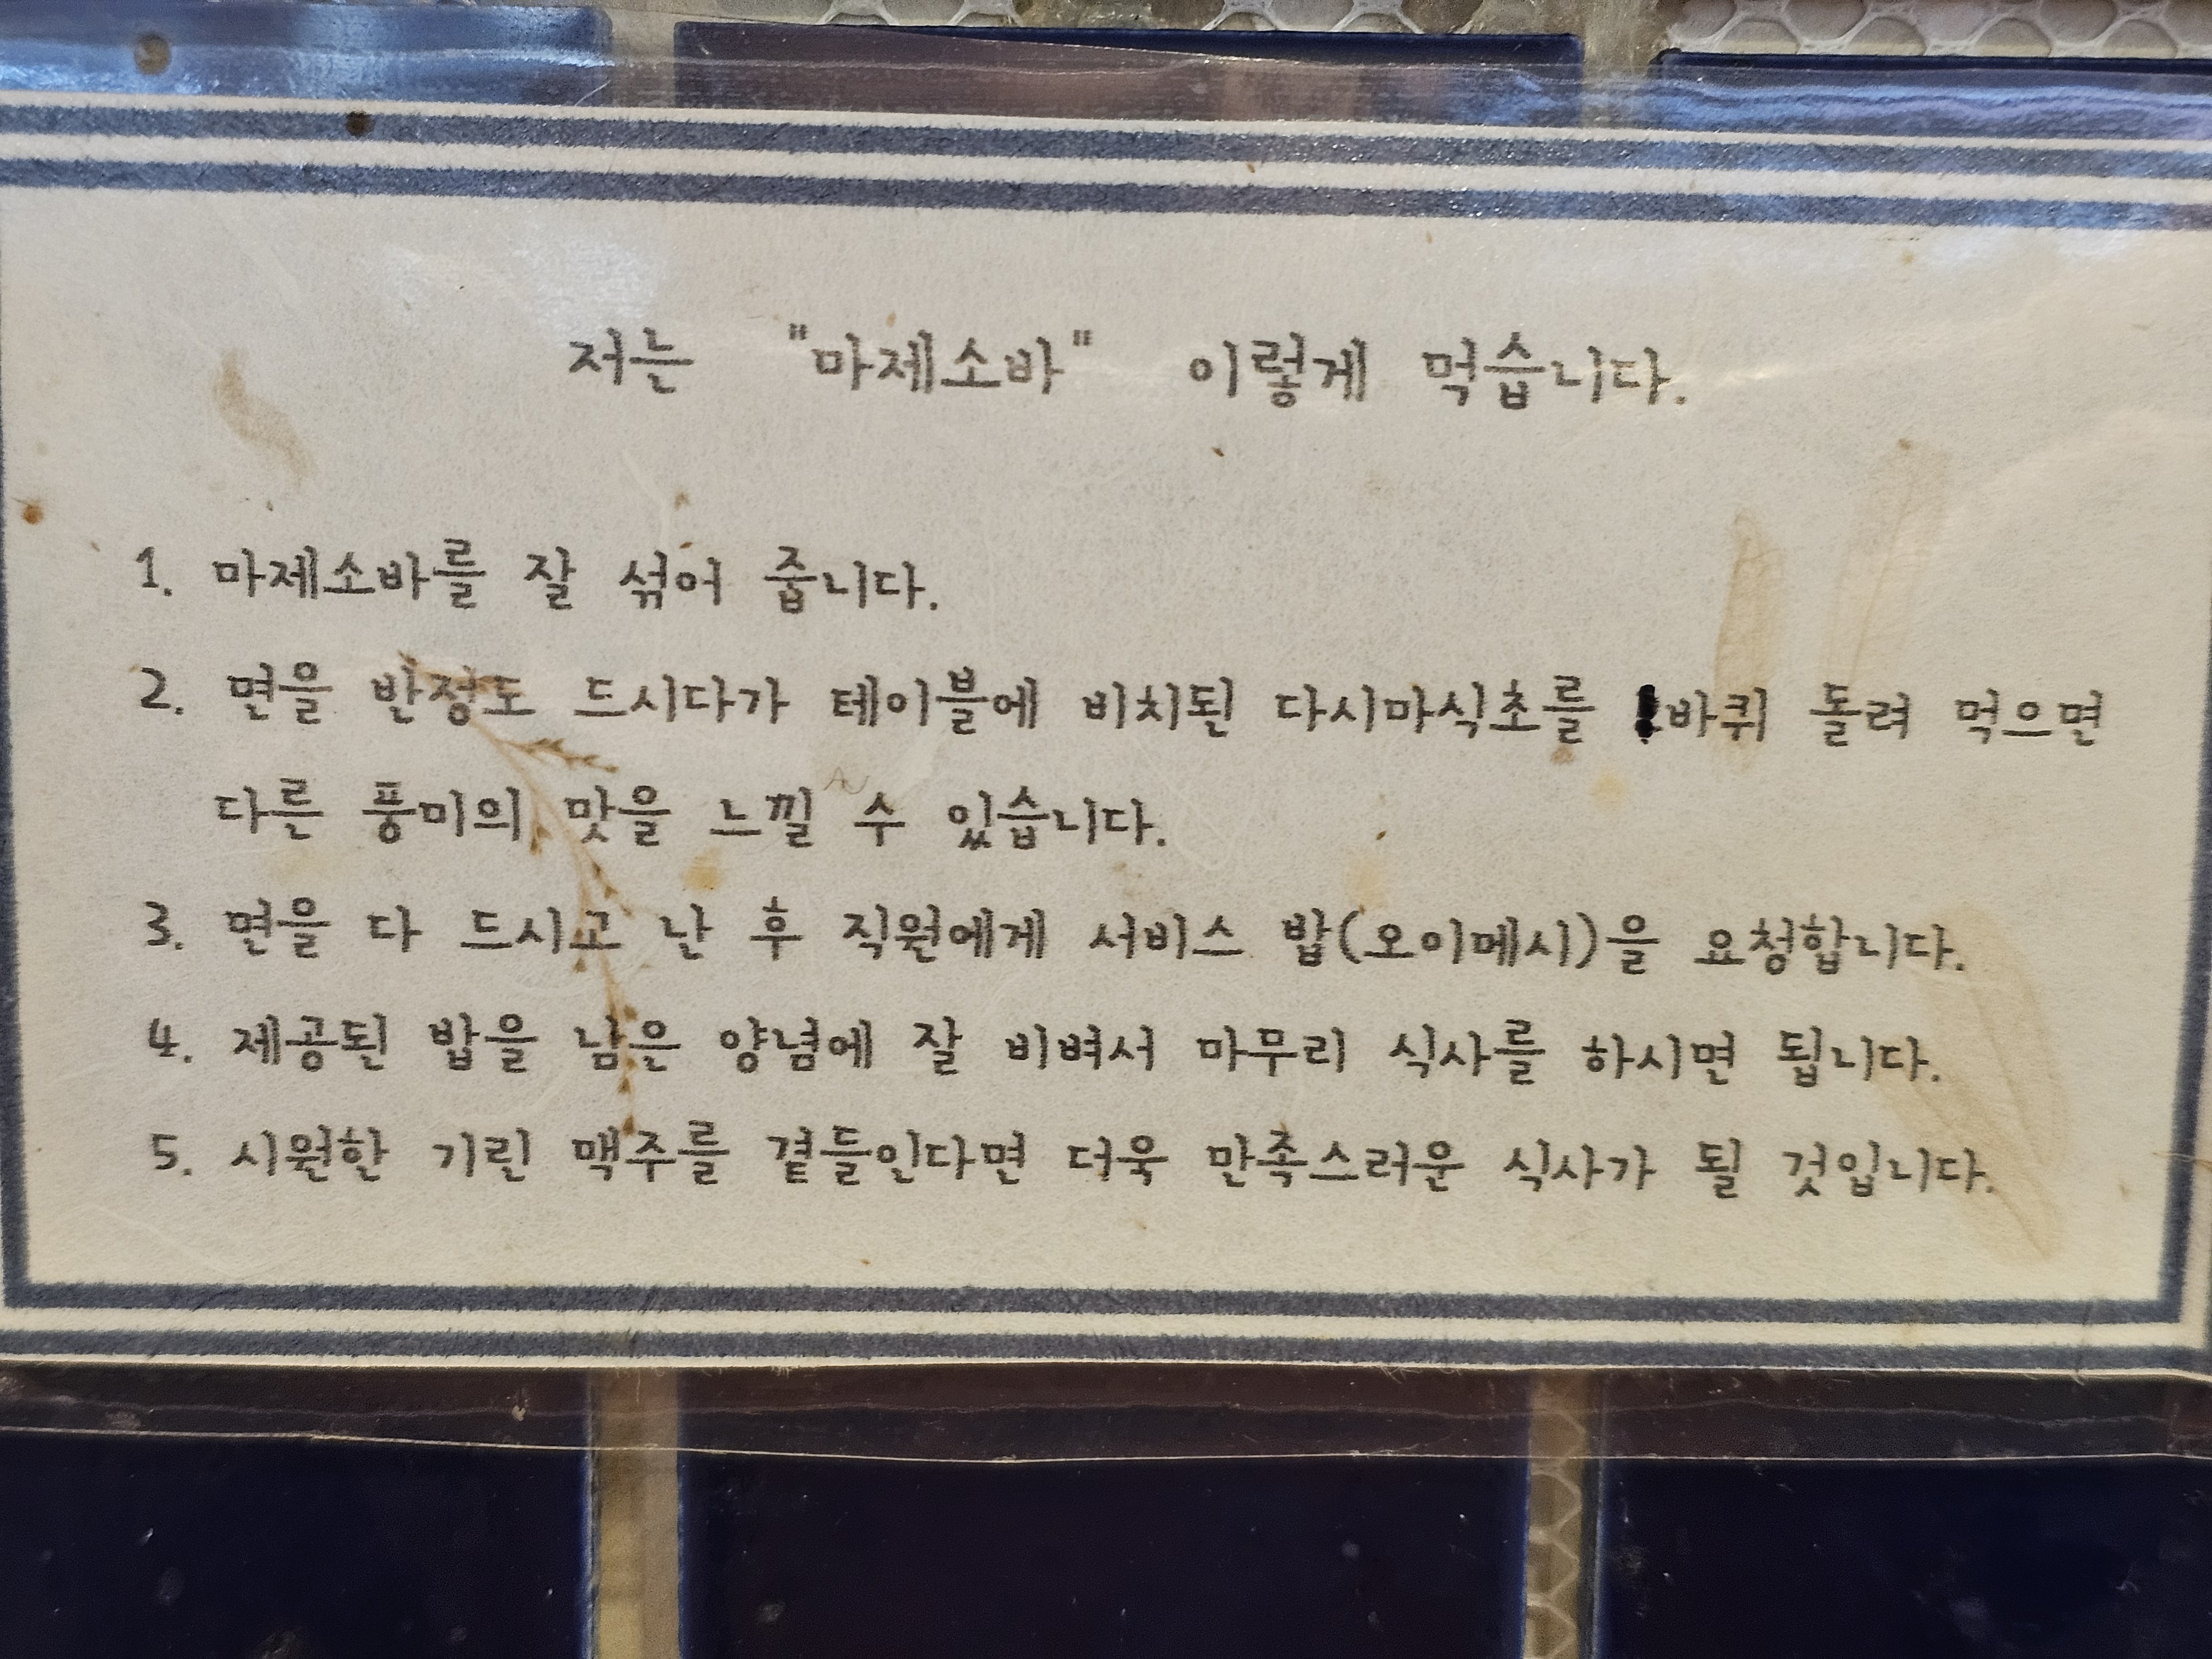 저는 "마제소바" 이렇게 먹습니다.
1. 마제소바를 잘 섞어 줍니다.
2. 면을 반정도 드시다가 테이블에 비치된 다시마식초를 바퀴 돌려 먹으면
다른 풍미의 맛을 느낄 수 있습니다.
3. 면을 다 드시고 난 후 직원에게 서비스 밥(오이메시)을 요청합니다.
4. 제공된 밥을 남은 양념에 잘 비벼서 마무리 식사를 하시면 됩니다.
5. 시원한 기린 맥주를 곁들인다면 더욱 만족스러운 식사가 될 것입니다.